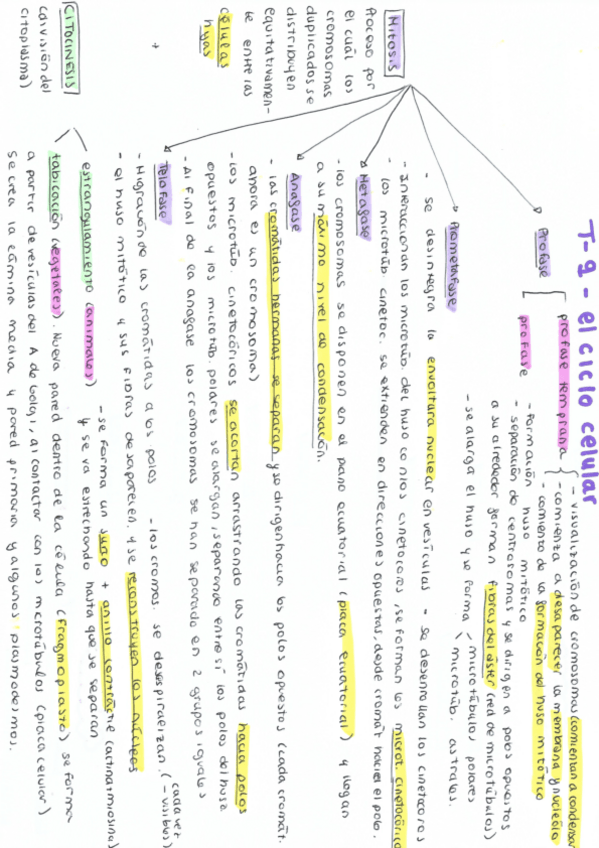 T-9 - el ciclo celular
Mitosis
Proceso por
el cuál los
cromosomas
duplicados se
distribuyen
equitativamen-
te entre las
células
hijas
+
CITOCINESIS
(división del
citoplasma)
Profase
profase temprana
- visualización de cromosomas (comienzan a condensar
- comienza a desaparecer la membrana y nucleolo
- comienzo de la formación del huso mitótico
profase
- formación huso mitótico
- separación de centrosomas y se dirigen a polos opuestos
a su alrededor forman fibras del áster (red de microtúbulos)
- se alarga el huso y se forma
microtúbulos polares
microtúb. astrales.
Prometafase
- se desintegra la envoltura nuclear en vesículas
- se desarrollan los cinetocoros
- Interaccionan los microtúb. del huso con los cinetocoros, se forman los microt. cinetocóricos
- los microtúb. cinetoc. se extienden en direcciones opuestas, desde cromát hacia el polo.
Metafase
- los cromosomas se disponen en el plano ecuatorial (placa ecuatorial) y llegan
a su máximo nivel de condensación.
Anafase
- las cromátidas hermanas se separan y se dirigen hacia los polos opuestos (cada cromát.
ahora es un cromosoma)
- los microtúb. cinetocóricos se acortan arrastrando las cromátidas hacia polos
opuestos y los microtúb. polares se alargan, separando entre sí los polos del huso
- Al final de la anafase los cromosomas se han separado en 2 grupos iguales
Telofase
- Migración de las cromátidas a los polos
- los cromos. se desespiralizan.
(cada vez
- visibles)
- el huso mitótico y sus fibras desaparecen, y se reconstruyen los núcleos
estrangulamiento (animales)
- se forma un surco + anillo contráctil (actina + miosina)
y se va estrechando hasta que se separan
tabicación (vegetales). Nueva pared dentro de la célula (fragmoplasto) se forma
a partir de vesículas del A de Golgi, al contactar con los microtúbulos (placa celular)
Se crea la lámina media y pared primaria y algunos plasmodesmos.